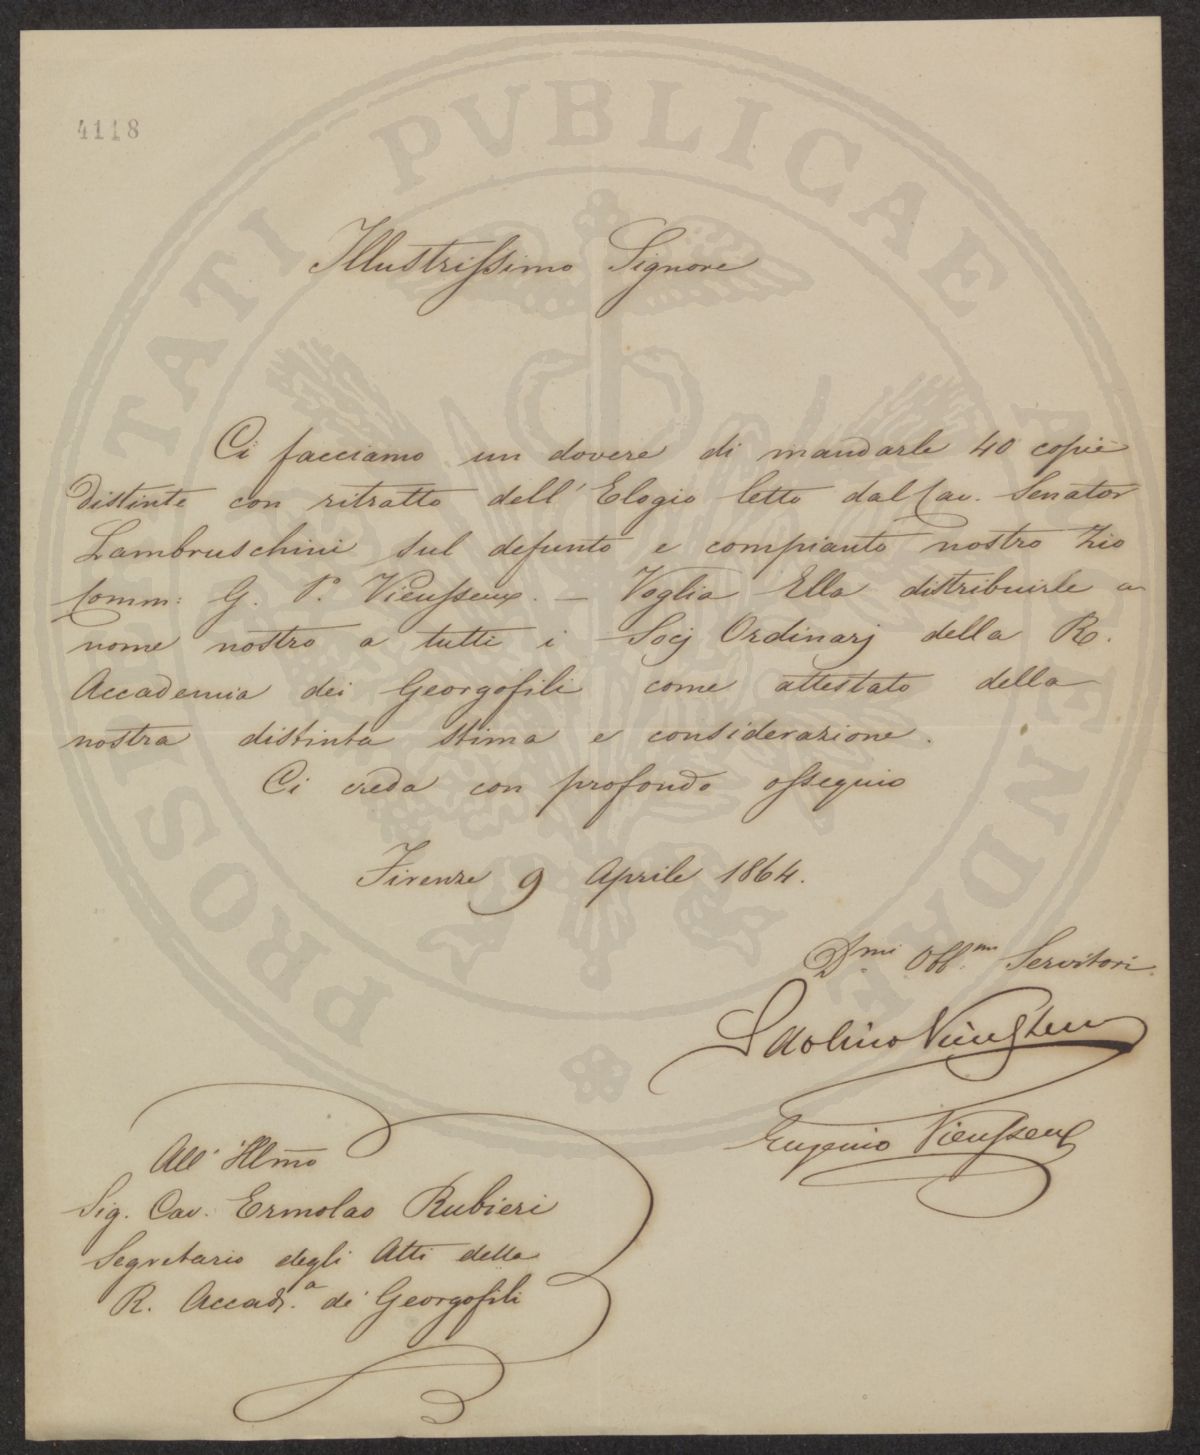 4118
PROSPERITATI PVBLICAE AVGENDAE
Illustrissimo Signore
Ci facciamo un dovere di mandarle 40 copie
distinte con ritratto dell'Elogio letto dal Cav. Senator
Lambruschini sul defunto e compianto nostro Zio
Comm: G. P. Vieusseux. — Voglia Ella distribuirle a
nome nostro a tutti i Socj Ordinarj della R.
Accademia dei Georgofili come attestato della
nostra distinta stima e considerazione.
Ci creda con profondo ossequio
Firenze 9 Aprile 1864.
Dmi Obb.mi Servitori
Vieusseux
Eugenio Vieusseux
All' Illmo
Sig. Cav. Ermolao Rubieri
Segretario degli Atti della
R. Accad.a dei Georgofili